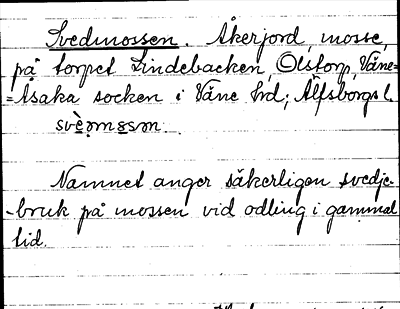 Svedmossen. Åkerjord, mosse,
på torpet Lindebacken, Olstorp, Väne-
=Åsaka socken i Väne hd; Älfsborgs l.
Namnet anger säkerligen svedje-
-bruk på mossen vid odling i gammal
tid.